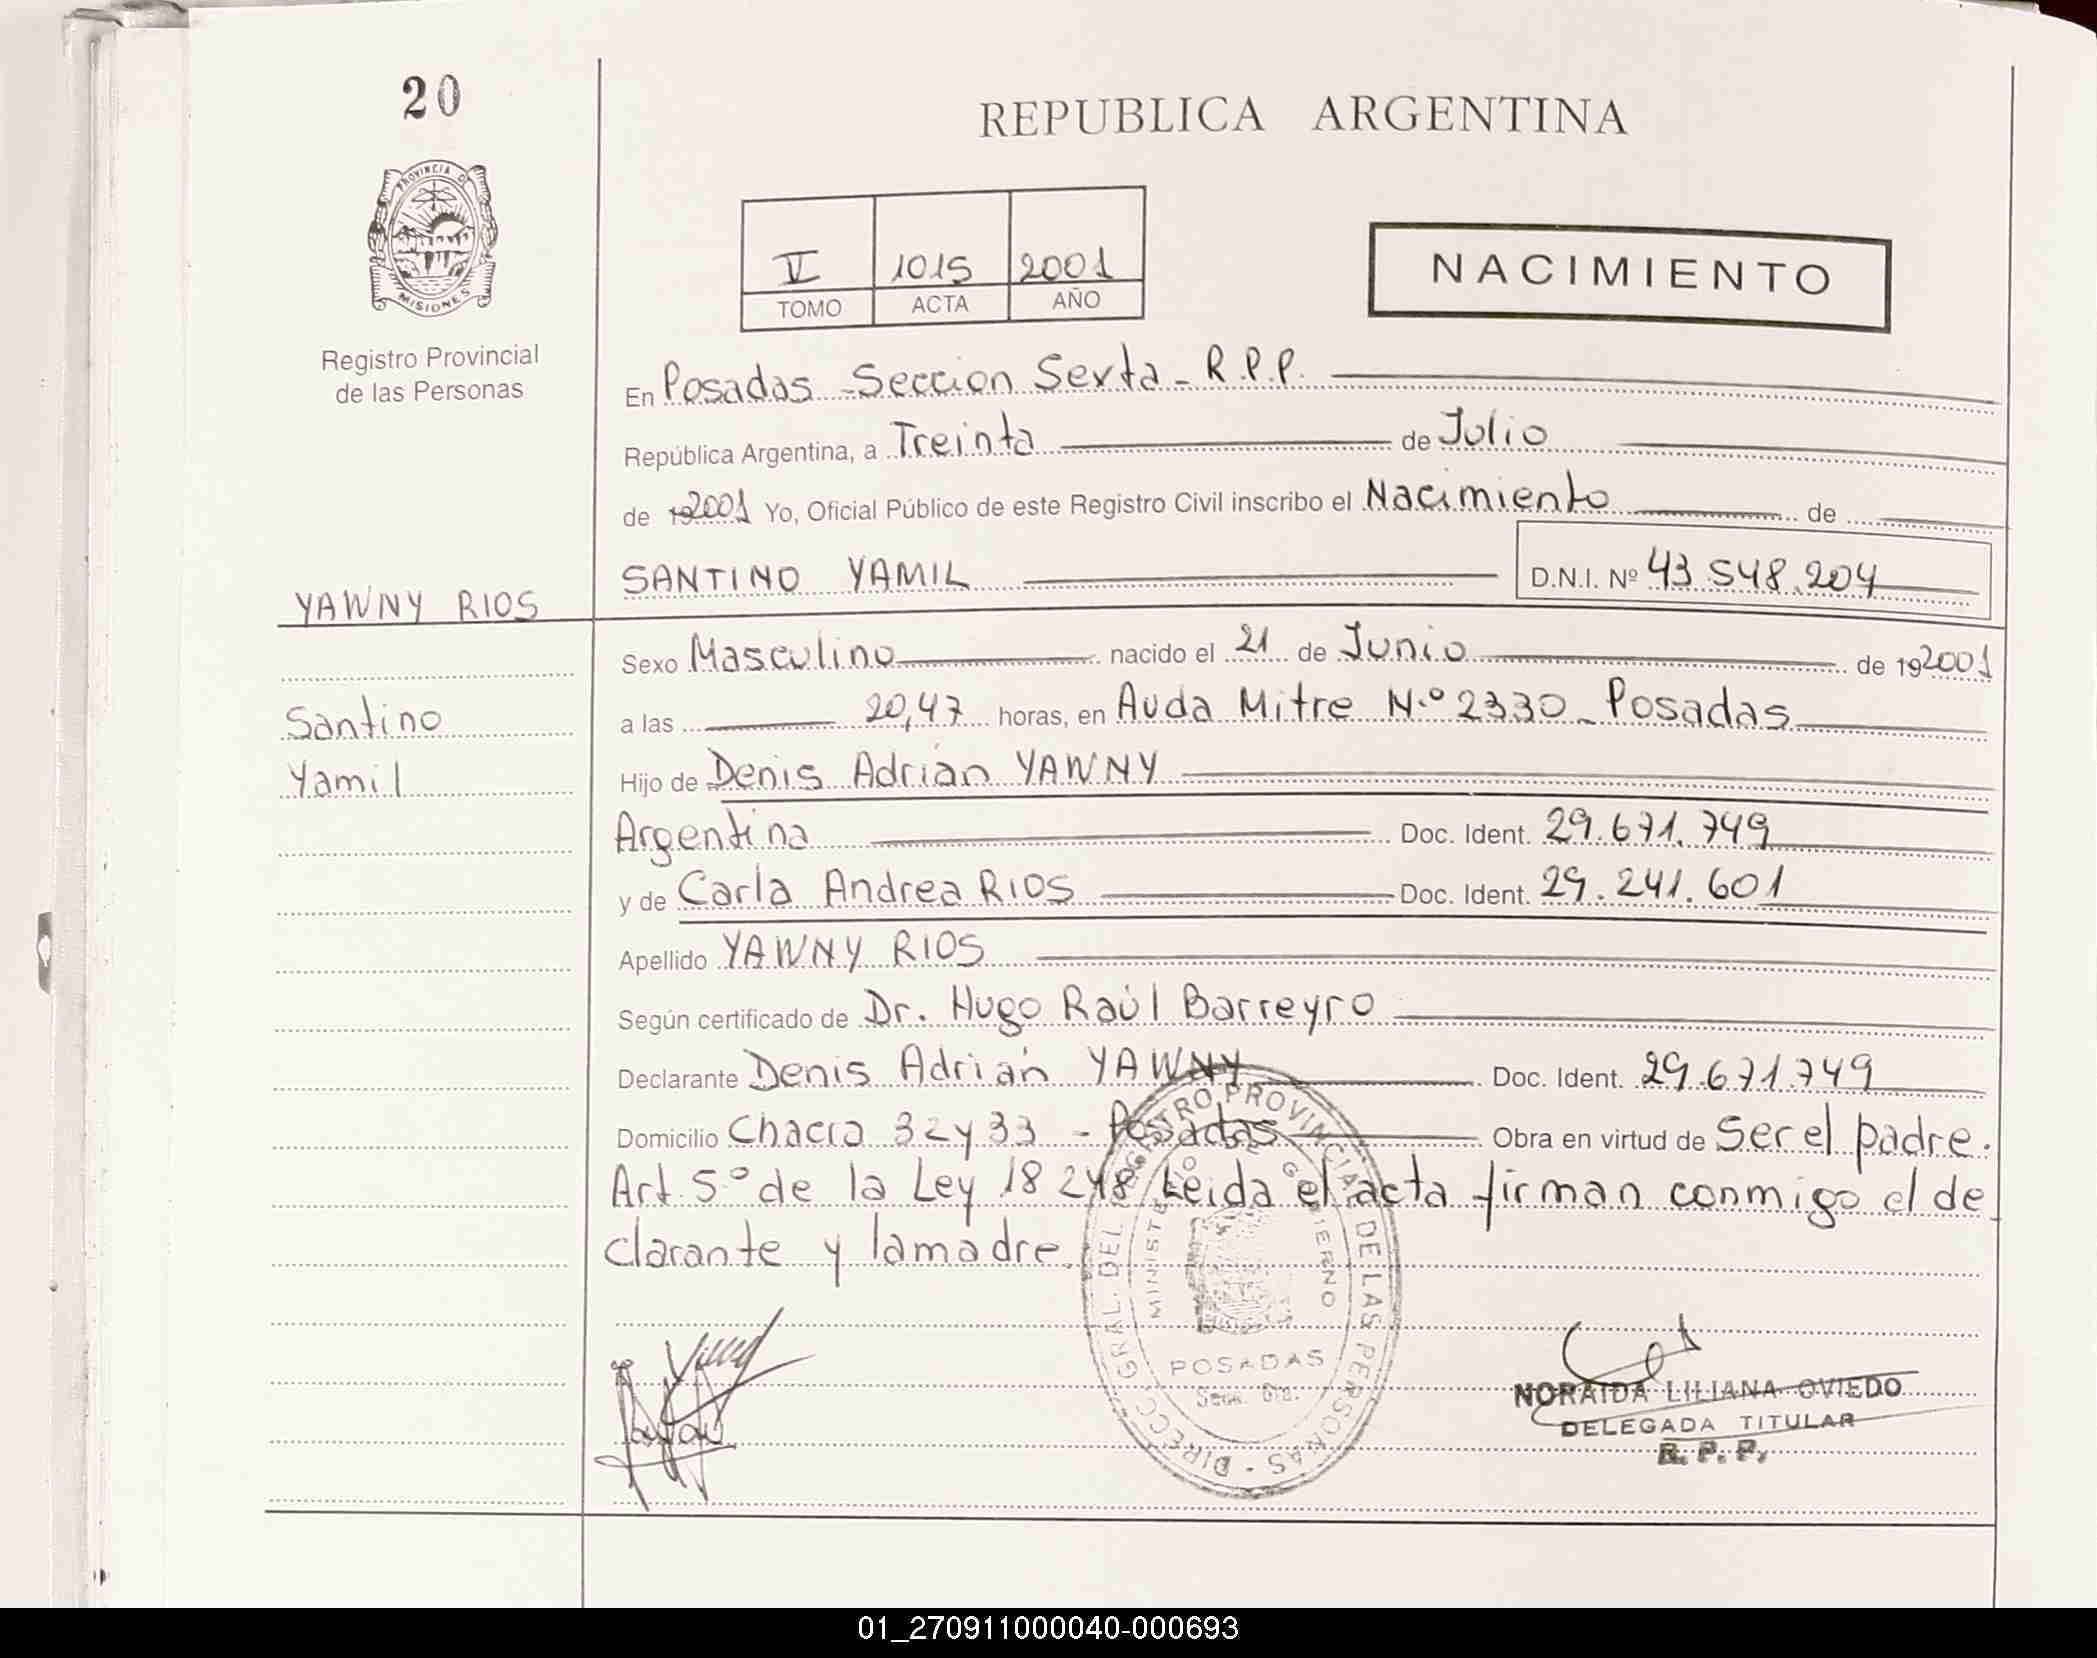 20
REPUBLICA ARGENTINA
PROVINCIA D
MISIONES
Registro Provincial
de las Personas
V 1015 2001
TOMO ACTA AÑO
NACIMIENTO
En Posadas - Seccion Sexta - R.P.P.
República Argentina, a Treinta de Julio
de 192001 Yo, Oficial Público de este Registro Civil inscribo el Nacimiento de
SANTINO YAMIL D.N.I. Nº 43.548.204
YAWNY RIOS
Sexo Masculino nacido el 21 de Junio de 192001
Santino
a las 20,47 horas, en Avda Mitre N.º 2330 - Posadas
Yamil
Hijo de Denis Adrián YAWNY
Argentina Doc. Ident. 29.671.749
y de Carla Andrea RIOS Doc. Ident. 29.241.601
Apellido YAWNY RIOS
Según certificado de Dr. Hugo Raúl Barreyro
Declarante Denis Adrián YAWNY Doc. Ident. 29.671.749
Domicilio Chacra 32 y 33 - Posadas Obra en virtud de Ser el padre.
Art. 5º de la Ley 18248 Leida el acta firman conmigo el de
clarante y la madre.
DIRECC. GRAL. DEL REGISTRO PROVINCIAL DE LAS PERSONAS
MINISTERIO DE GOBIERNO
POSADAS
NORAIDA LILIANA OVIEDO
DELEGADA TITULAR
R. P. P.
01_270911000040-000693